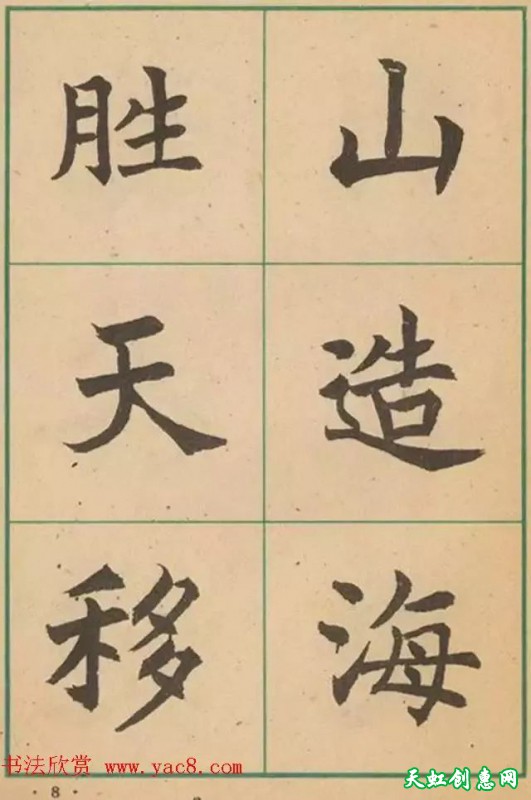 胜天移
山造海
书法欣赏 www.yac8.com
· 8 ·
天虹创惠网